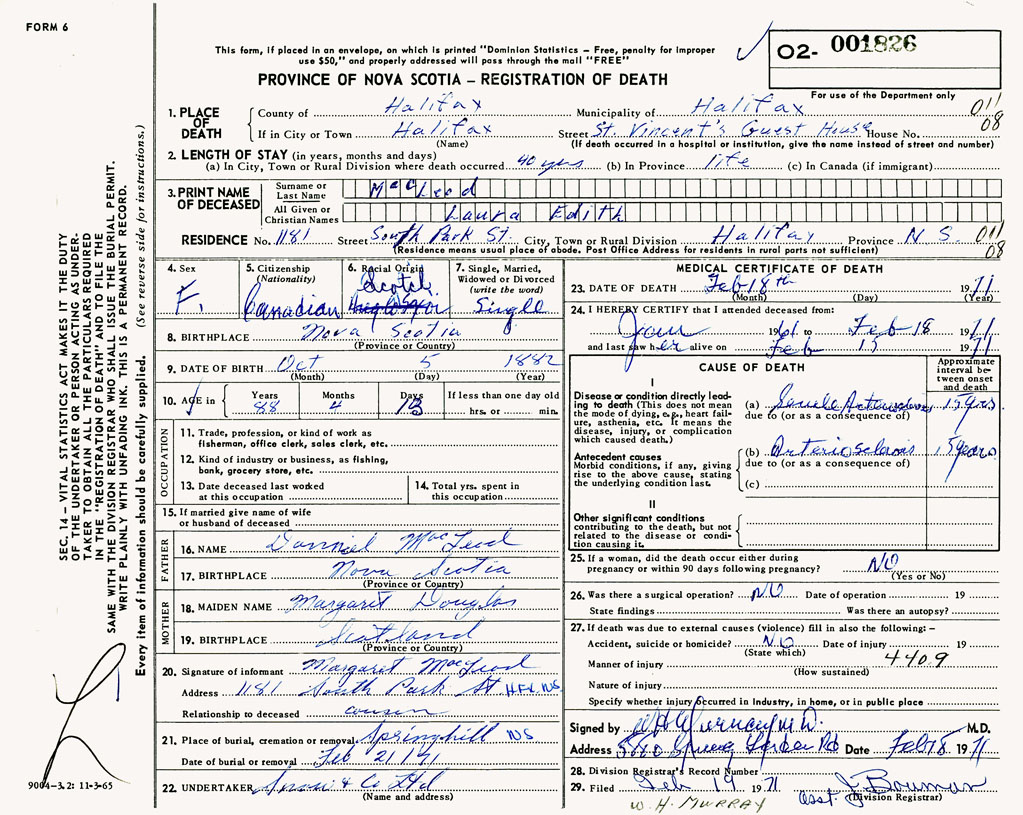 FORM 6
This form, if placed in an envelope, on which is printed "Dominion Statistics – Free, penalty for improper
use $50," and properly addressed will pass through the mail "FREE"
PROVINCE OF NOVA SCOTIA – REGISTRATION OF DEATH
02- 001826
For use of the Department only
1. PLACE OF DEATH
County of Halifax Municipality of Halifax 011
If in City or Town Halifax Street St. Vincent's Guest House House No. 08
(Name) (If death occurred in a hospital or institution, give the name instead of street and number)
2. LENGTH OF STAY (in years, months and days)
(a) In City, Town or Rural Division where death occurred 40 yrs (b) In Province life (c) In Canada (if immigrant)
3. PRINT NAME OF DECEASED
Surname or Last Name MacLeod
All Given or Christian Names Laura Edith
RESIDENCE No. 1181 Street South Park St. City, Town or Rural Division Halifax Province N.S. 011
08
(Residence means usual place of abode. Post Office Address for residents in rural parts not sufficient)
4. Sex
F.
5. Citizenship
(Nationality)
Canadian
6. Racial Origin
Scotch
7. Single, Married,
Widowed or Divorced
(write the word)
Single
8. BIRTHPLACE Nova Scotia
(Province or Country)
9. DATE OF BIRTH Oct 5 1882
(Month) (Day) (Year)
10. AGE in Years 88 Months 4 Days 13 If less than one day old
hrs. or min.
OCCUPATION
11. Trade, profession, or kind of work as
fisherman, office clerk, sales clerk, etc.
12. Kind of industry or business, as fishing,
bank, grocery store, etc.
13. Date deceased last worked
at this occupation
14. Total yrs. spent in
this occupation
15. If married give name of wife
or husband of deceased
FATHER
16. NAME Danniel MacLeod
17. BIRTHPLACE Nova Scotia
(Province or Country)
MOTHER
18. MAIDEN NAME Margaret Douglas
19. BIRTHPLACE Scotland
(Province or Country)
20. Signature of informant Margaret MacLeod
Address 1181 South Park St HFX NS
Relationship to deceased cousin
21. Place of burial, cremation or removal Springhill NS
Date of burial or removal Feb 21/71
22. UNDERTAKER Snow & Co Ltd
(Name and address)
MEDICAL CERTIFICATE OF DEATH
23. DATE OF DEATH Feb 18th 1971
(Month) (Day) (Year)
24. I HEREBY CERTIFY that I attended deceased from:
Jan 1961 to Feb 18 1971
and last saw her alive on Feb 15 1971
CAUSE OF DEATH
Approximate
interval be-
tween onset
and death
I
Disease or condition directly lead-
ing to death (This does not mean
the mode of dying, e.g., heart fail-
ure, asthenia, etc. It means the
disease, injury, or complication
which caused death.)
(a) Senile 15 years
due to (or as a consequence of)
Antecedent causes
Morbid conditions, if any, giving
rise to the above cause, stating
the underlying condition last.
(b) Arteriosclerosis 15 years
due to (or as a consequence of)
(c)
II
Other significant conditions
contributing to the death, but not
related to the disease or condi-
tion causing it.
25. If a woman, did the death occur either during
pregnancy or within 90 days following pregnancy? NO
(Yes or No)
26. Was there a surgical operation? NO Date of operation 19
State findings Was there an autopsy?
27. If death was due to external causes (violence) fill in also the following: –
Accident, suicide or homicide? NO Date of injury 19
(State which)
Manner of injury 4409
(How sustained)
Nature of injury
Specify whether injury occurred in Industry, in home, or in public place
Signed by M.D.
Address 5880 Spring Garden Rd Date Feb 18 1971
28. Division Registrar's Record Number
29. Filed Feb 19 1971 Asst. J Bowman
(Division Registrar)
W. H. MURRAY
SEC. 14 – VITAL STATISTICS ACT MAKES IT THE DUTY
OF THE UNDERTAKER OR PERSON ACTING AS UNDER-
TAKER TO OBTAIN ALL THE PARTICULARS REQUIRED
IN THE "REGISTRATION OF DEATH" AND TO FILE THE
SAME WITH THE DIVISION REGISTRAR WHO SHALL ISSUE THE BURIAL PERMIT.
WRITE PLAINLY WITH UNFADING INK. THIS IS A PERMANENT RECORD.
Every item of information should be carefully supplied. (See reverse side for instructions.)
9004–3.2: 11-3-65